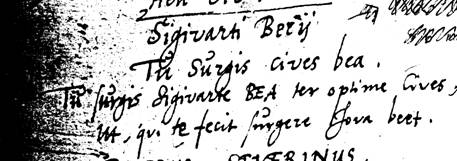 Sigivarti Beeij
Tu Surgis cives bea.
Tu surgis Sigivarte BEA ter optime Cives,
Ut, qui te fecit surgere Ehova beet.